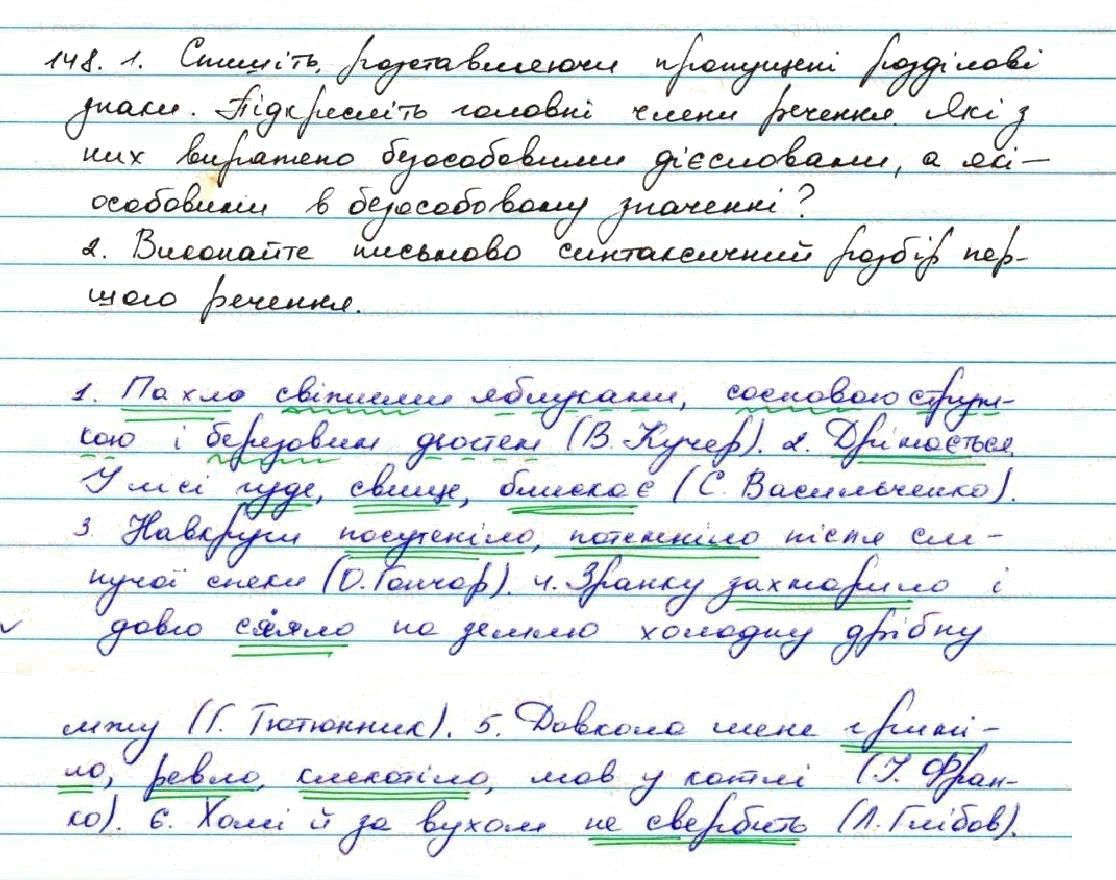 148. 1. Спишіть, розставляючи пропущені розділові
знаки. Підкресліть головні члени речення. Які з
них виражено безособовими дієсловами, а які —
особовими в безособовому значенні?
2. Виконайте письмово синтаксичний розбір пер-
шого речення.
1. Пахло свіжими яблуками, сосновою струж-
кою і березовим дьогтем (В. Кучер). 2. Дрімається.
У млі гуде, свище, блискає (С. Васильченко).
3. Навкруги посутеніло, потемніло після сли-
пучої спеки (О. Гончар). 4. Зранку захмарило і
довго сіяло на землю холодну дрібну
мжу (Г. Тютюнник). 5. Довкола мене грими-
ло, ревло, клекотіло, мов у котлі (І. Фран-
ко). 6. Хомі й за вухом не свербить (Л. Глібов).